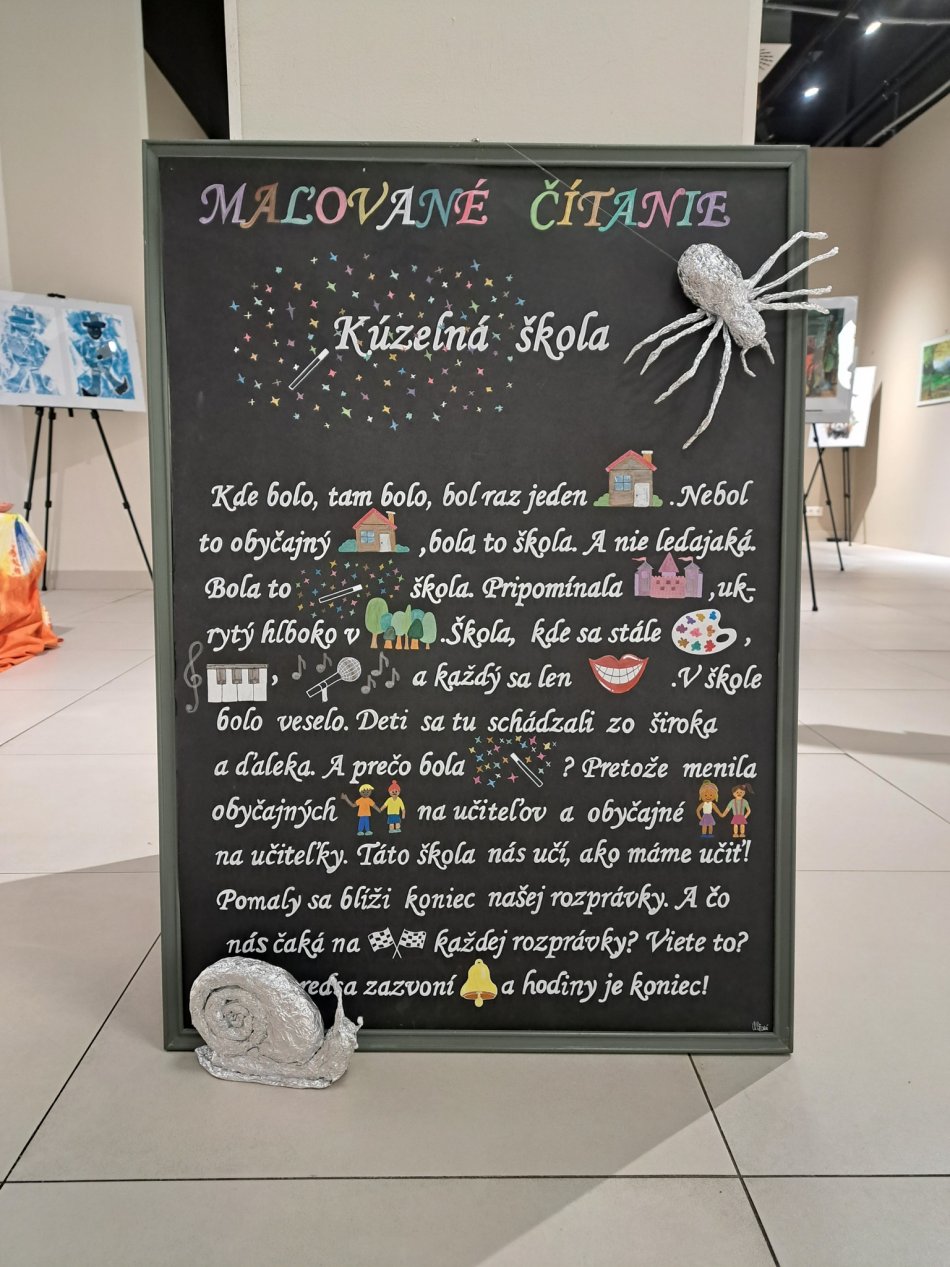 MAĽOVANÉ ČÍTANIE
Kúzelná škola
Kde bolo, tam bolo, bol raz jeden . Nebol
to obyčajný , bola to škola. A nie ledajaká.
Bola to škola. Pripomínala , uk-
rytý hlboko v . Škola, kde sa stále ,
, a každý sa len . V škole
bolo veselo. Deti sa tu schádzali zo široka
a ďaleka. A prečo bola ? Pretože menila
obyčajných na učiteľov a obyčajné
na učiteľky. Táto škola nás učí, ako máme učiť!
Pomaly sa blíži koniec našej rozprávky. A čo
nás čaká na každej rozprávky? Viete to?
zazvoní a hodiny je koniec!